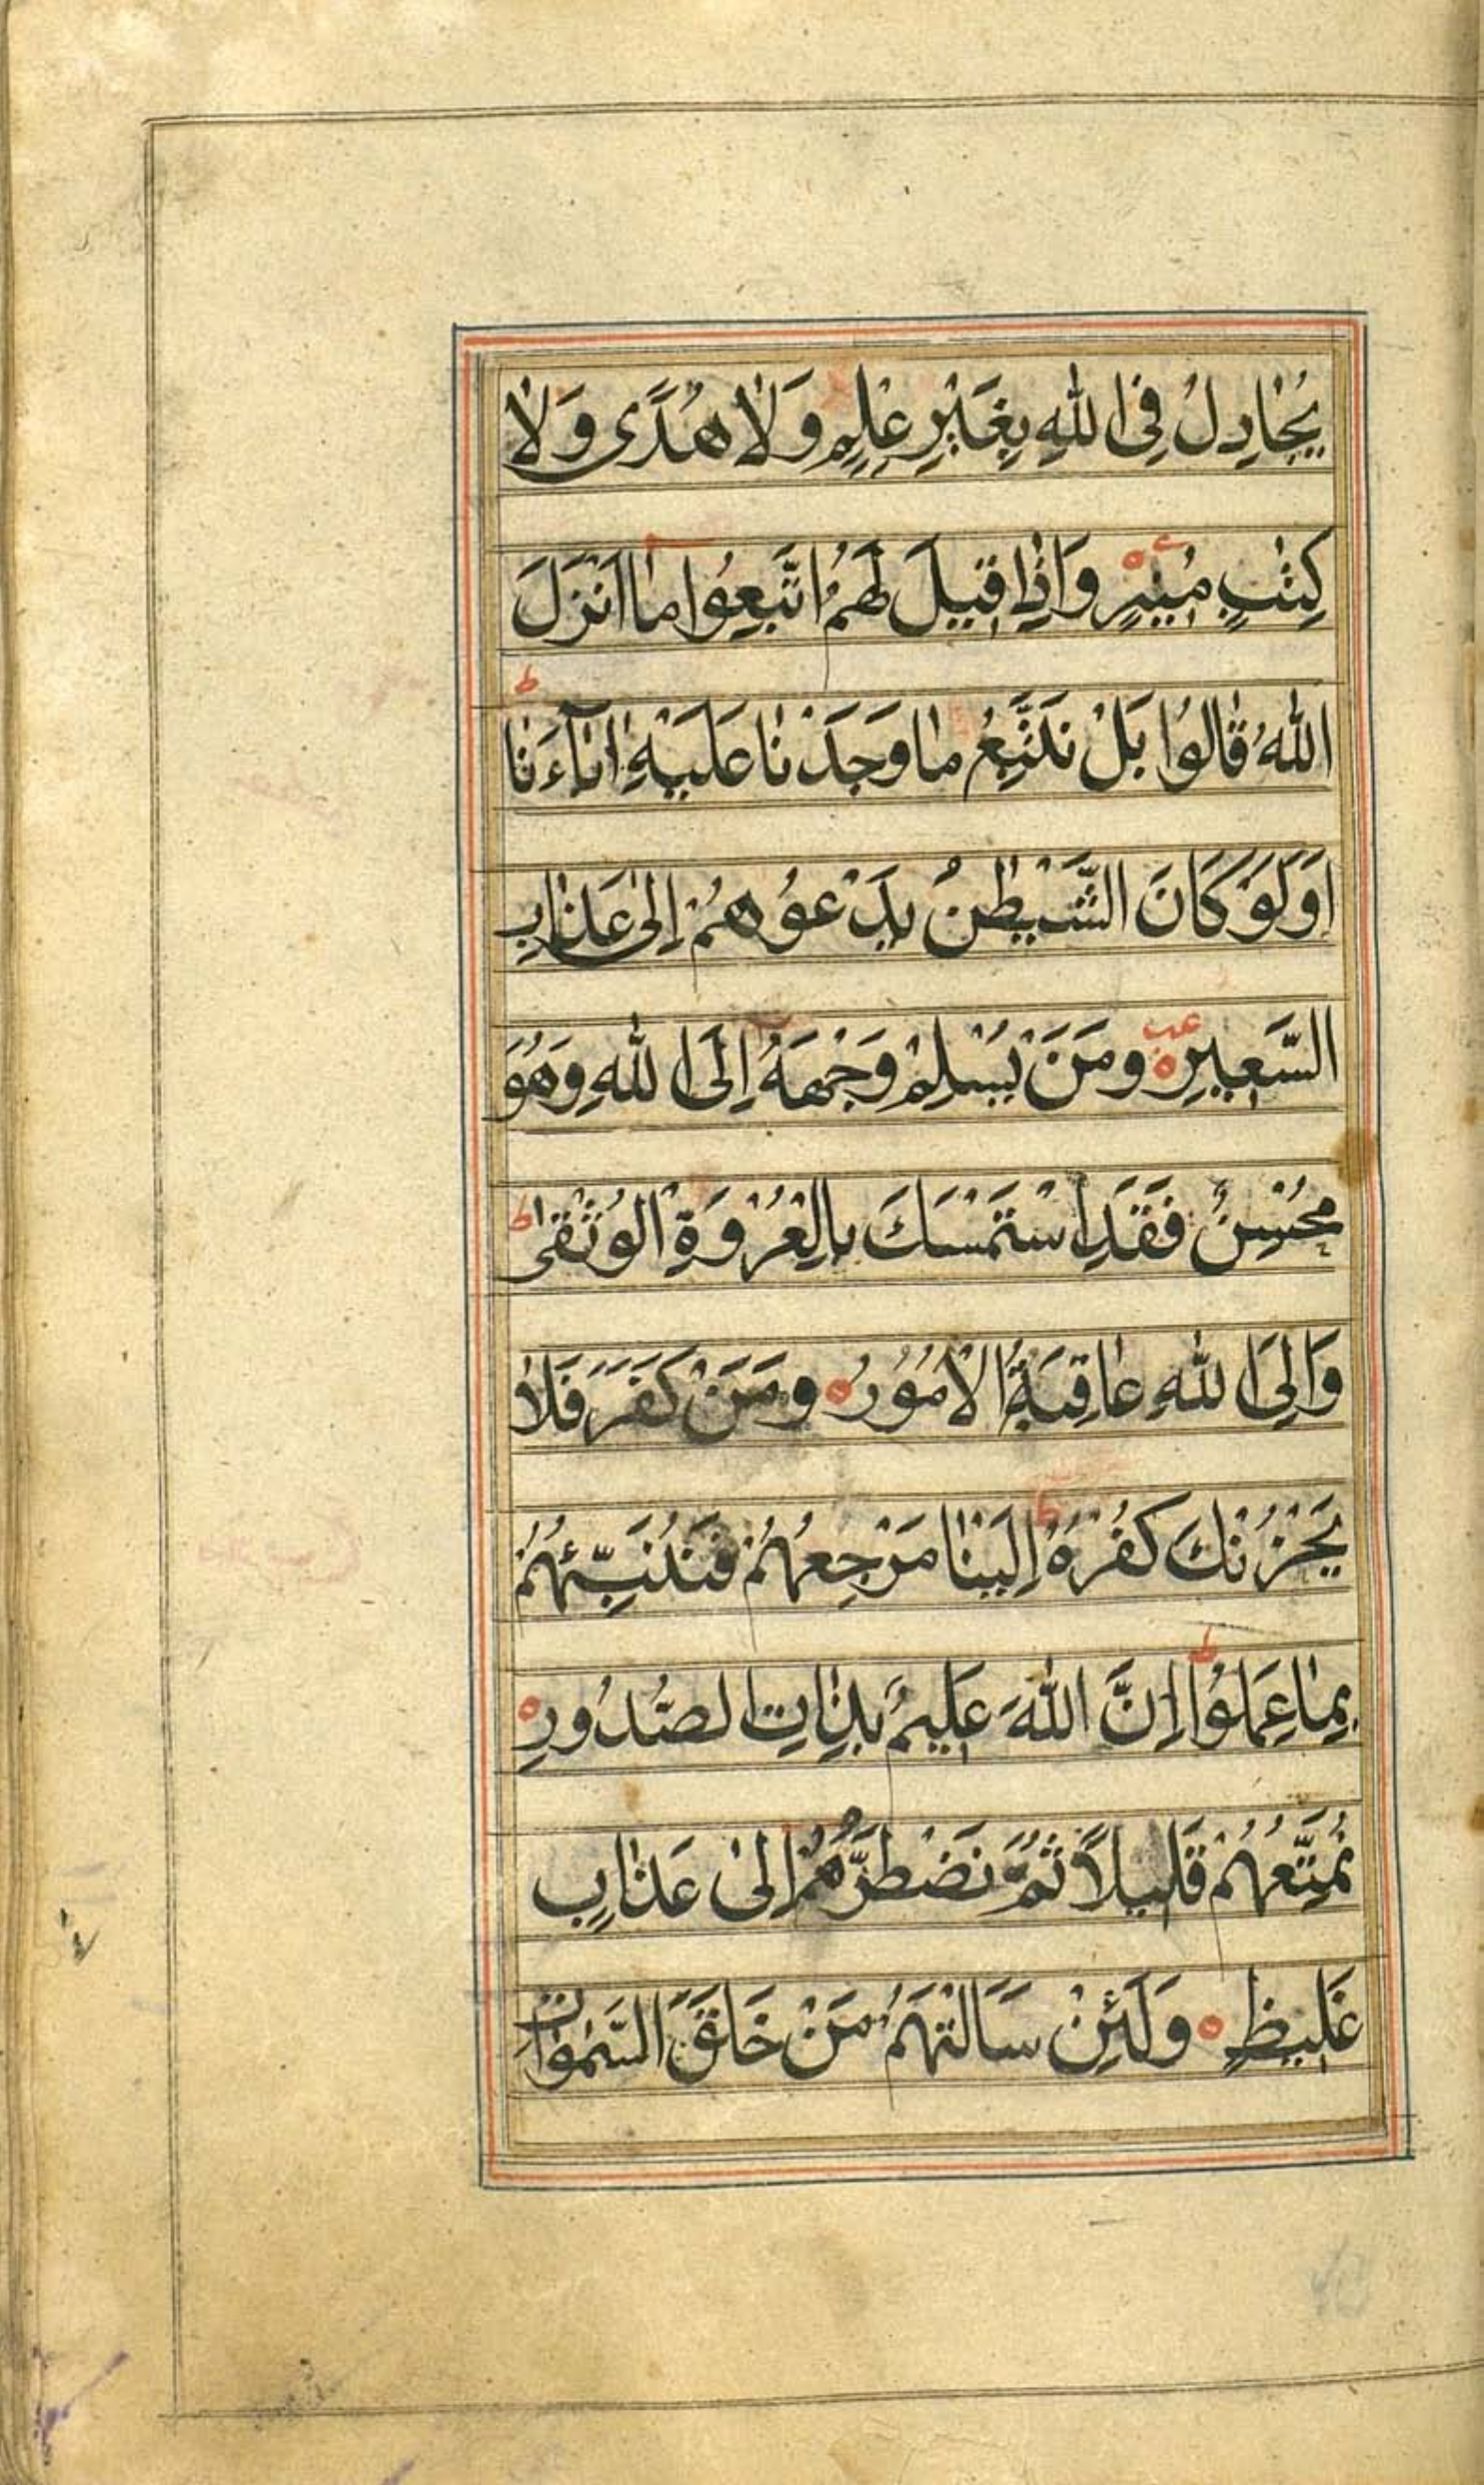 يُجَادِلُ فِي اللّٰهِ بِغَيْرِ عِلْمٍ وَلَا هُدًى وَلَا
كِتٰبٍ مُنِيرٍ ه وَاِذَا قِيلَ لَهُمُ اتَّبِعُوا مَا اَنْزَلَ
اللّٰهُ قَالُوا بَلْ نَتَّبِعُ مَا وَجَدْنَا عَلَيْهِ اٰبَآءَنَا ط
اَوَلَوْ كَانَ الشَّيْطٰنُ يَدْعُوهُمْ اِلٰى عَذَابِ
السَّعِيرِ ه وَمَنْ يُسْلِمْ وَجْهَهُ اِلَى اللّٰهِ وَهُوَ
مُحْسِنٌ فَقَدِ اسْتَمْسَكَ بِالْعُرْوَةِ الْوُثْقٰى ط
وَاِلَى اللّٰهِ عَاقِبَةُ الْاُمُوُرِ ه وَمَنْ كَفَرَ فَلَا
يَحْزُنْكَ كُفْرُهُ ط اِلَيْنَا مَرْجِعُهُمْ فَنُنَبِّئُهُمْ
بِمَا عَمِلُوا ط اِنَّ اللّٰهَ عَلِيمٌ بِذَاتِ الصُّدُورِ ه
نُمَتِّعُهُمْ قَلِيلًا ثُمَّ نَضْطَرُّهُمْ اِلٰى عَذَابٍ
غَلِيظٍ ه وَلَئِنْ سَاَلْتَهُمْ مَنْ خَلَقَ السَّمٰوَاتِ